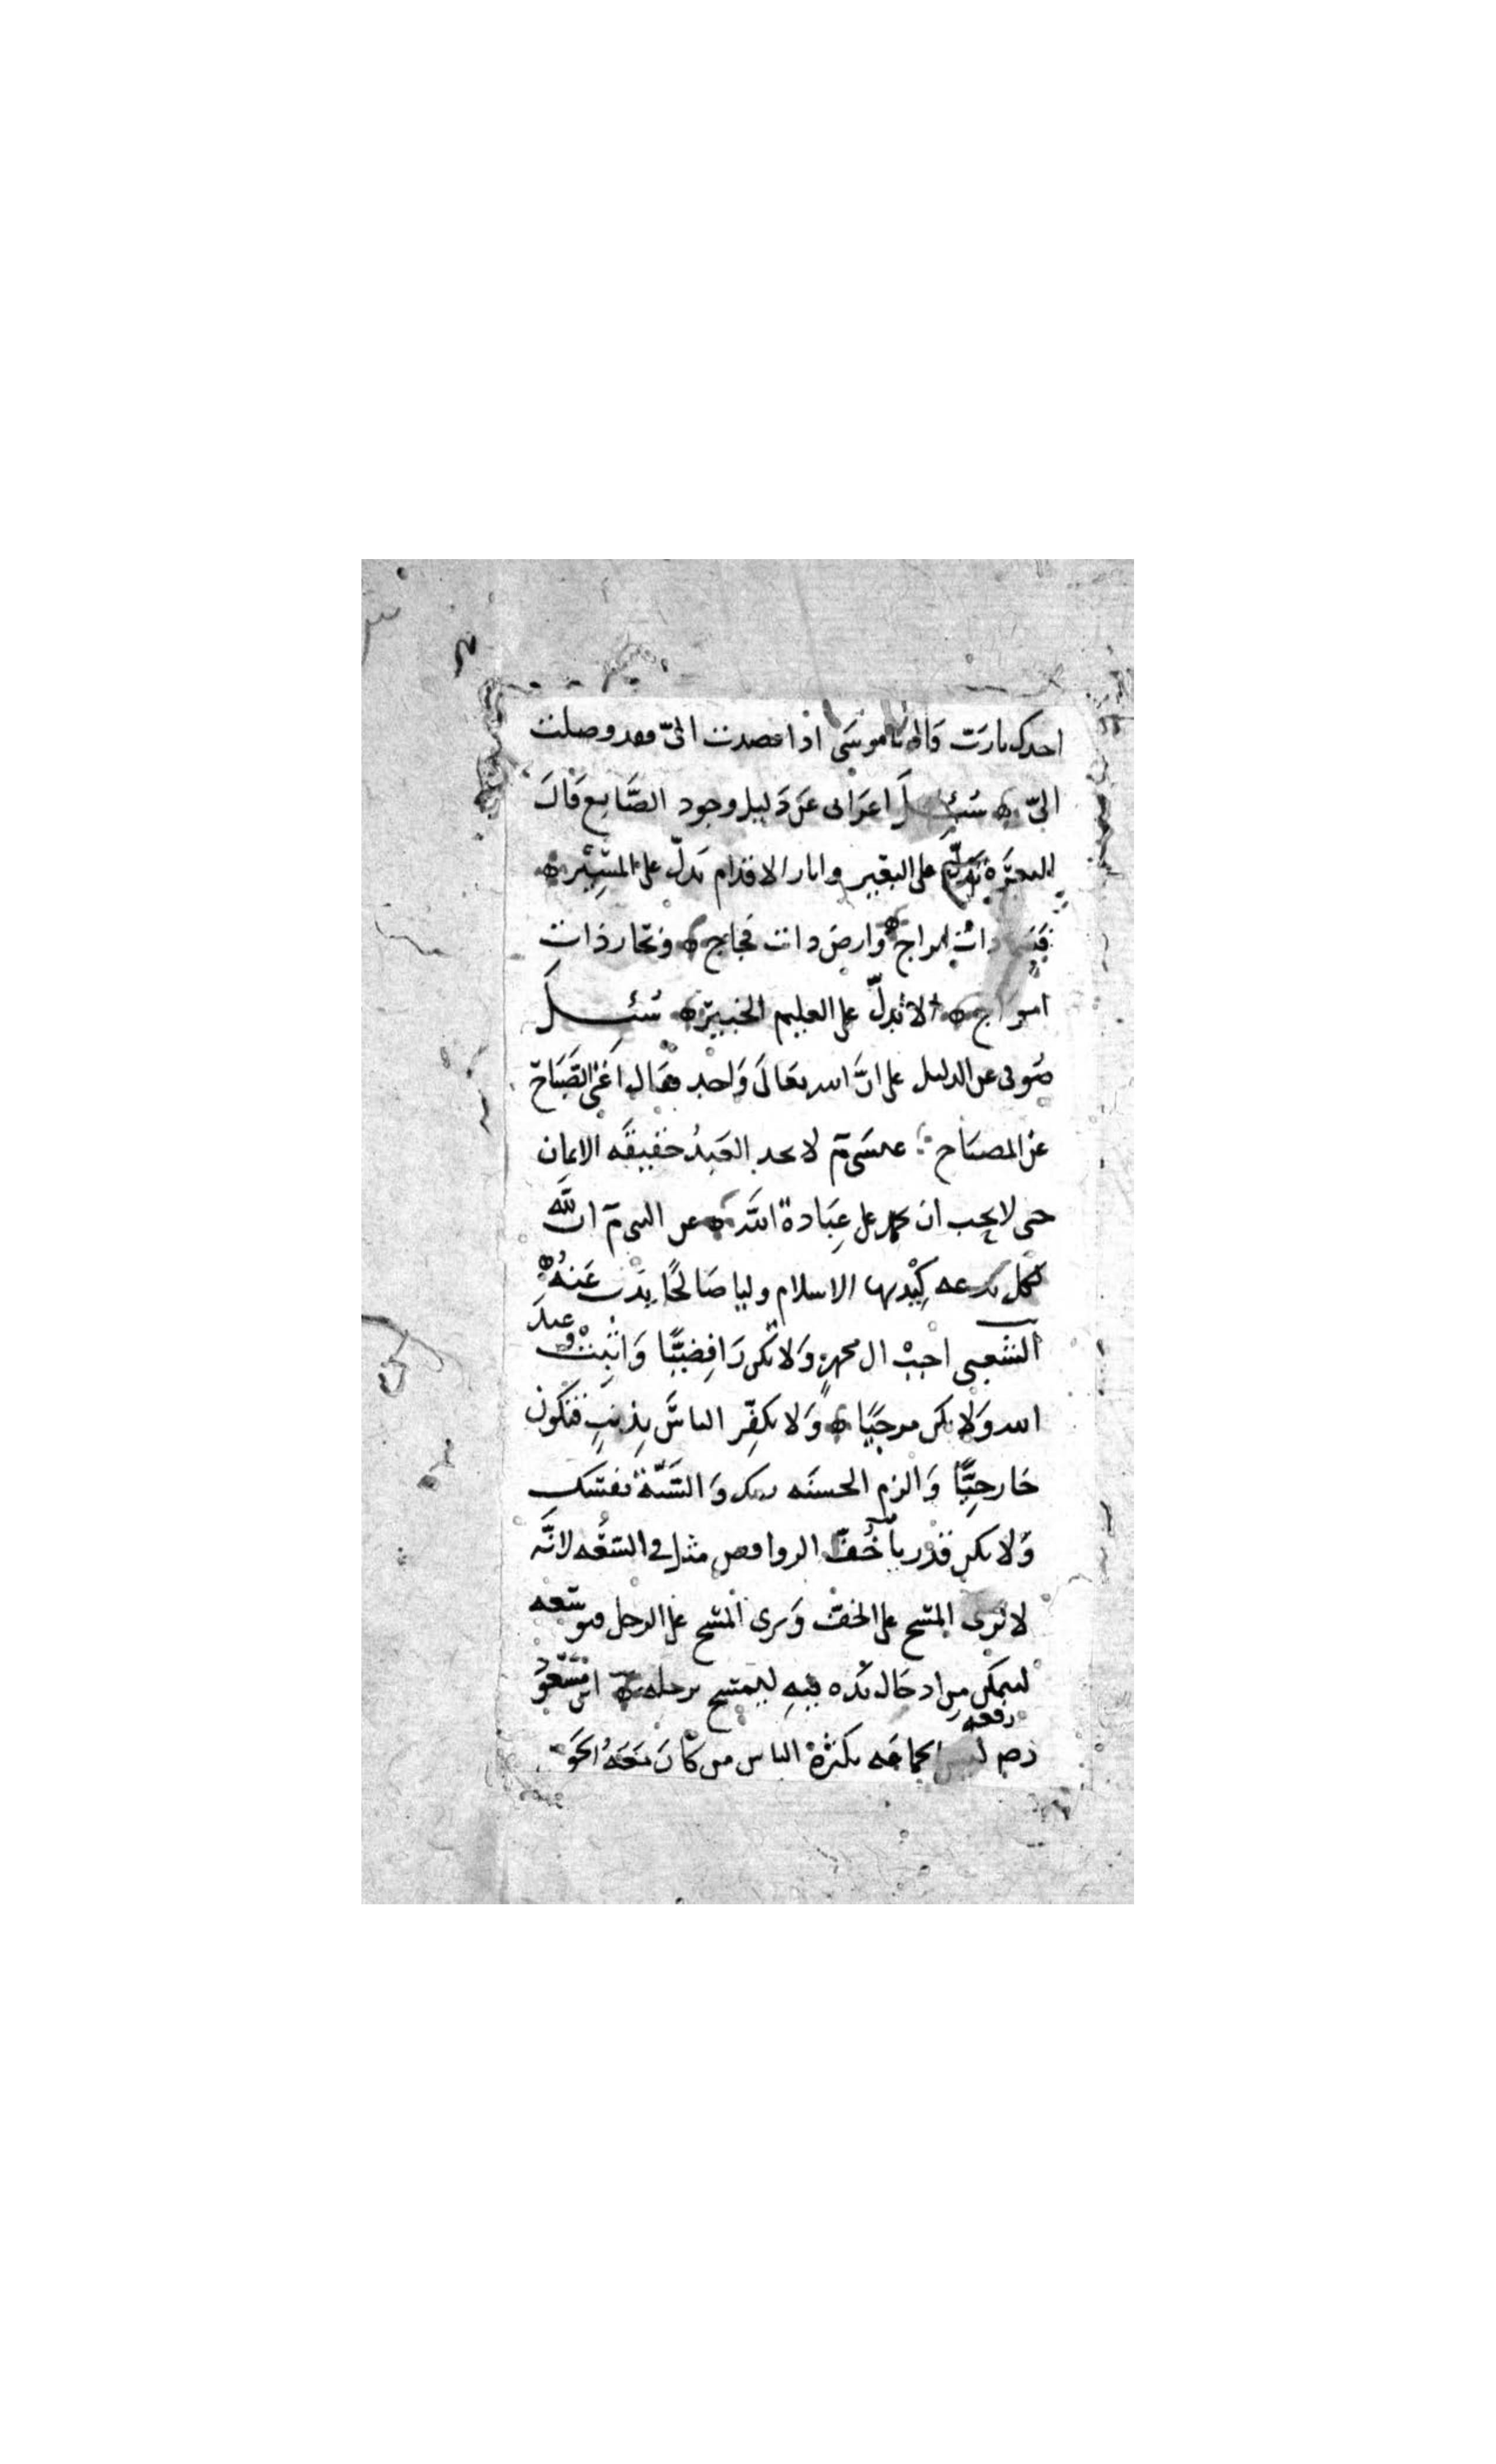 اجدك يارب قال يا موسى اذا قصدت الىّ فقد وصلت
الىّ سُئِلَ اعرابى عن دَليل وجود الصَّانع قال
البعرَة تدلّ على البَعير واثار الاقدام تدلّ على المسير
ذات ابراج وارض ذات فجاج وبحار ذات
امواج الا تدلّ على العليم الخبير سُئِلَ
صُوفى عن الدليل على انَّ الله تعالىَ وَاحد فقال اَغنى الصَّبَاح
عن المصبَاح عيسَى لا يجد العَبدُ حقيقَه الايمان
حتى لا يحب ان يحمد على عِبَادة اللّه عن النبى ان لله
كل بدعه كِيْدبها الاسلام وليا صَالحًا يذب عَنهُ
الشعبى احببْ ال محمدٍ وَلا تكن رَافِضيًّا وَاثبِتْ وعيد
الله وَلا تكن مرجيًا وَلا تكفّر الناسَ بِذنبٍ فتكون
خَارجيًّا وَالزم الحسنَه ربك وَالسَّيّئة نفسَك
وَلا تكن قدريا خُفّ الروافض مثل فى السَّعَه لانَّه
لا يَرى المسَح على الخفّ وَيرى المسَح على الرجل فيوسّعه
ليتمكن من ادخال يَده فيهِ ليمسَح برجله ابن مسعود
رفعه
ليس الجماعَه بكثرة الناس من كَانَ مَعَهُ الحَق